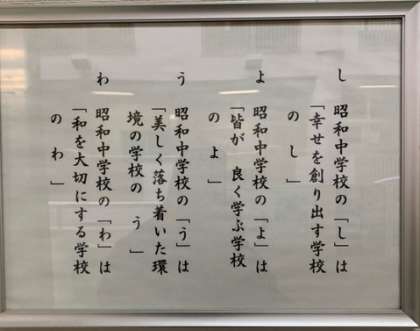 し 昭和中学校の「し」は
「幸せを創り出す学校
のし」
よ 昭和中学校の「よ」は
「皆が 良く学ぶ学校
のよ」
う 昭和中学校の「う」は
「美しく落ち着いた環
境の学校の う 」
わ 昭和中学校の「わ」は
「和を大切にする学校
のわ」